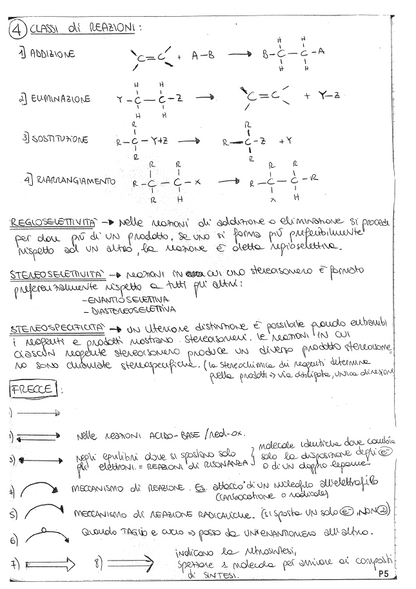 ④ CLASSI di REAZIONI:
1] ADDIZIONE C=C + A-B → B-C-C-A
H H
H H
2] ELIMINAZIONE Y-C-C-Z → C=C + Y-Z
H H
H H
3] SOSTITUZIONE R-C-Y+Z → R-C-Z + Y
4] RIARRANGIAMENTO R-C-C-X → R-C-C-R
REGIOSELETTIVITÀ → nelle reazioni di addizione o eliminazione si procede
per dare più di un prodotto, se uno si forma più preferibilmente
rispetto ad un altro, la reazione è detta regioselettiva.
STEREOSELETTIVITÀ → reazioni in cui uno stereoisomero è formato
preferenzialmente rispetto a tutti gli altri:
- ENANTIOSELETTIVA
- DIASTEREOSELETTIVA
STEREOSPECIFICITÀ → un'ulteriore distinzione è possibile quando entrambi
i reagenti e prodotti mostrano stereoisomeri. Le reazioni in cui
ciascun reagente stereoisomero produce un diverso prodotto stereoisome
ro sono chiamate stereospecifiche. (la stereochimica dei reagenti determina
quella prodotti → via obbligata, unica direzione)
FRECCE:
1) →
2) nelle REAZIONI ACIDO-BASE / red-ox.
3) negli equilibri dove si spostano solo
gli elettroni. = REAZIONI DI RISONANZA
molecole identiche dove cambia
solo la disposizione degli e⁻
o di un doppio legame.
4) MECCANISMO di REAZIONE. Es. attacco di un nucleofilo all'elettrofilo
(carbocatione o radicale)
5) MECCANISMO di REAZIONE RADICALICHE. (si sposta un solo e⁻, non 2)
6) Quando TAGLIO e arco → passo da un ENANTIOMERO all'altro.
7) 8) indicano la retrosintesi,
spezzare 1 molecola per arrivare ai composti
di SINTESI.
P5